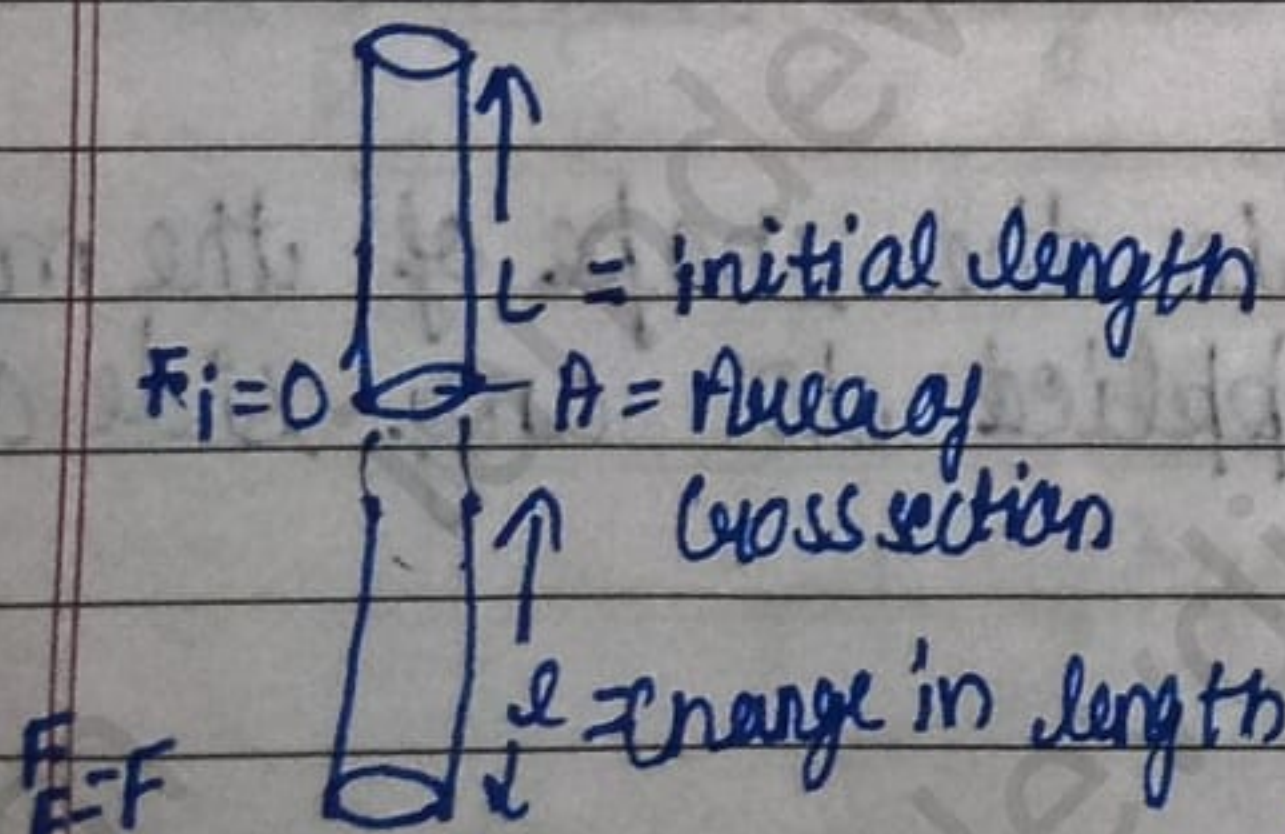 L = initial length
Fi=0
A = Area of
Cross section
l = Change in length
F
F=F